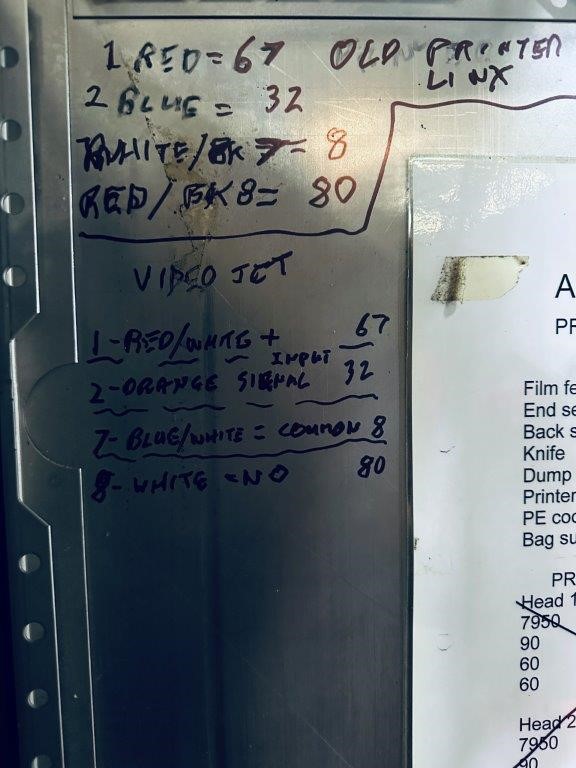 1 RED = 67 OLD PRINTER
LINX
2 BLUE = 32
WHITE/BK 7 = 8
RED/BK 8 = 80
VIDEO JET
1-RED/WHITE + 67
INPUT
2-ORANGE SIGNAL 32
7-BLUE/WHITE = COMMON 8
8-WHITE = NO 80
A
PR
Film fe
End se
Back s
Knife
Dump
Printer
PE coo
Bag su
PR
Head 1
7950
90
60
60
Head 2
7950
90